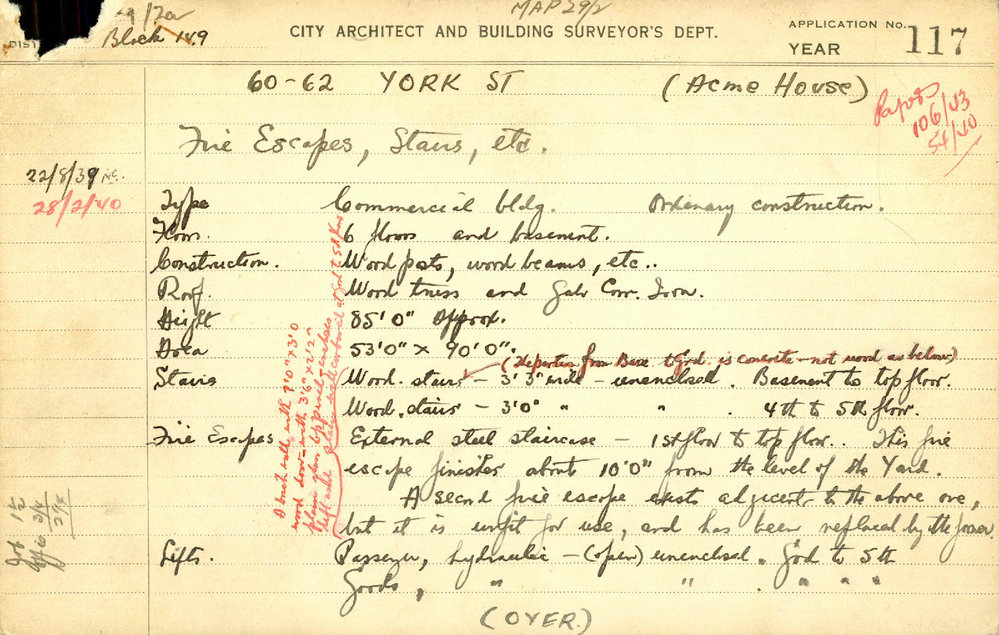 MAP 29/2
Block 149
CITY ARCHITECT AND BUILDING SURVEYOR'S DEPT.
APPLICATION No.
YEAR
117
60-62 YORK ST (Acme House)
Papers
106/43
54/40
Fire Escapes, Stairs, etc.
22/8/39
28/2/40
Type Commercial bldg. Ordinary construction.
Floors. 6 floors and basement.
Construction. Wood posts, wood beams, etc..
Roof. Wood truss and Galv Corr. Iron.
Height 85'0" Approx.
Area 53'0" x 90'0".
from Base to Grd. is concrete - not wood as below)
Stairs Wood. stairs - 3'3" wide - unenclosed. Basement to top floor.
Wood. stairs - 3'0" " " . 4th to 5th floor.
Fire Escapes External steel staircase - 1st floor to top flor.. This fire
escape finishes about 10'0" from the level of the Yard.
A second fire escape exists adjacent to the above one,
but it is unfit for use, and has been replaced by the former.
Lifts. Passenger, hydraulic - (open) unenclosed. Grd to 5th
Goods, " " . " " "
(OVER.)
A brick wall, with 7'0" x 3'0
wood door - with 3'6" x 2'2"